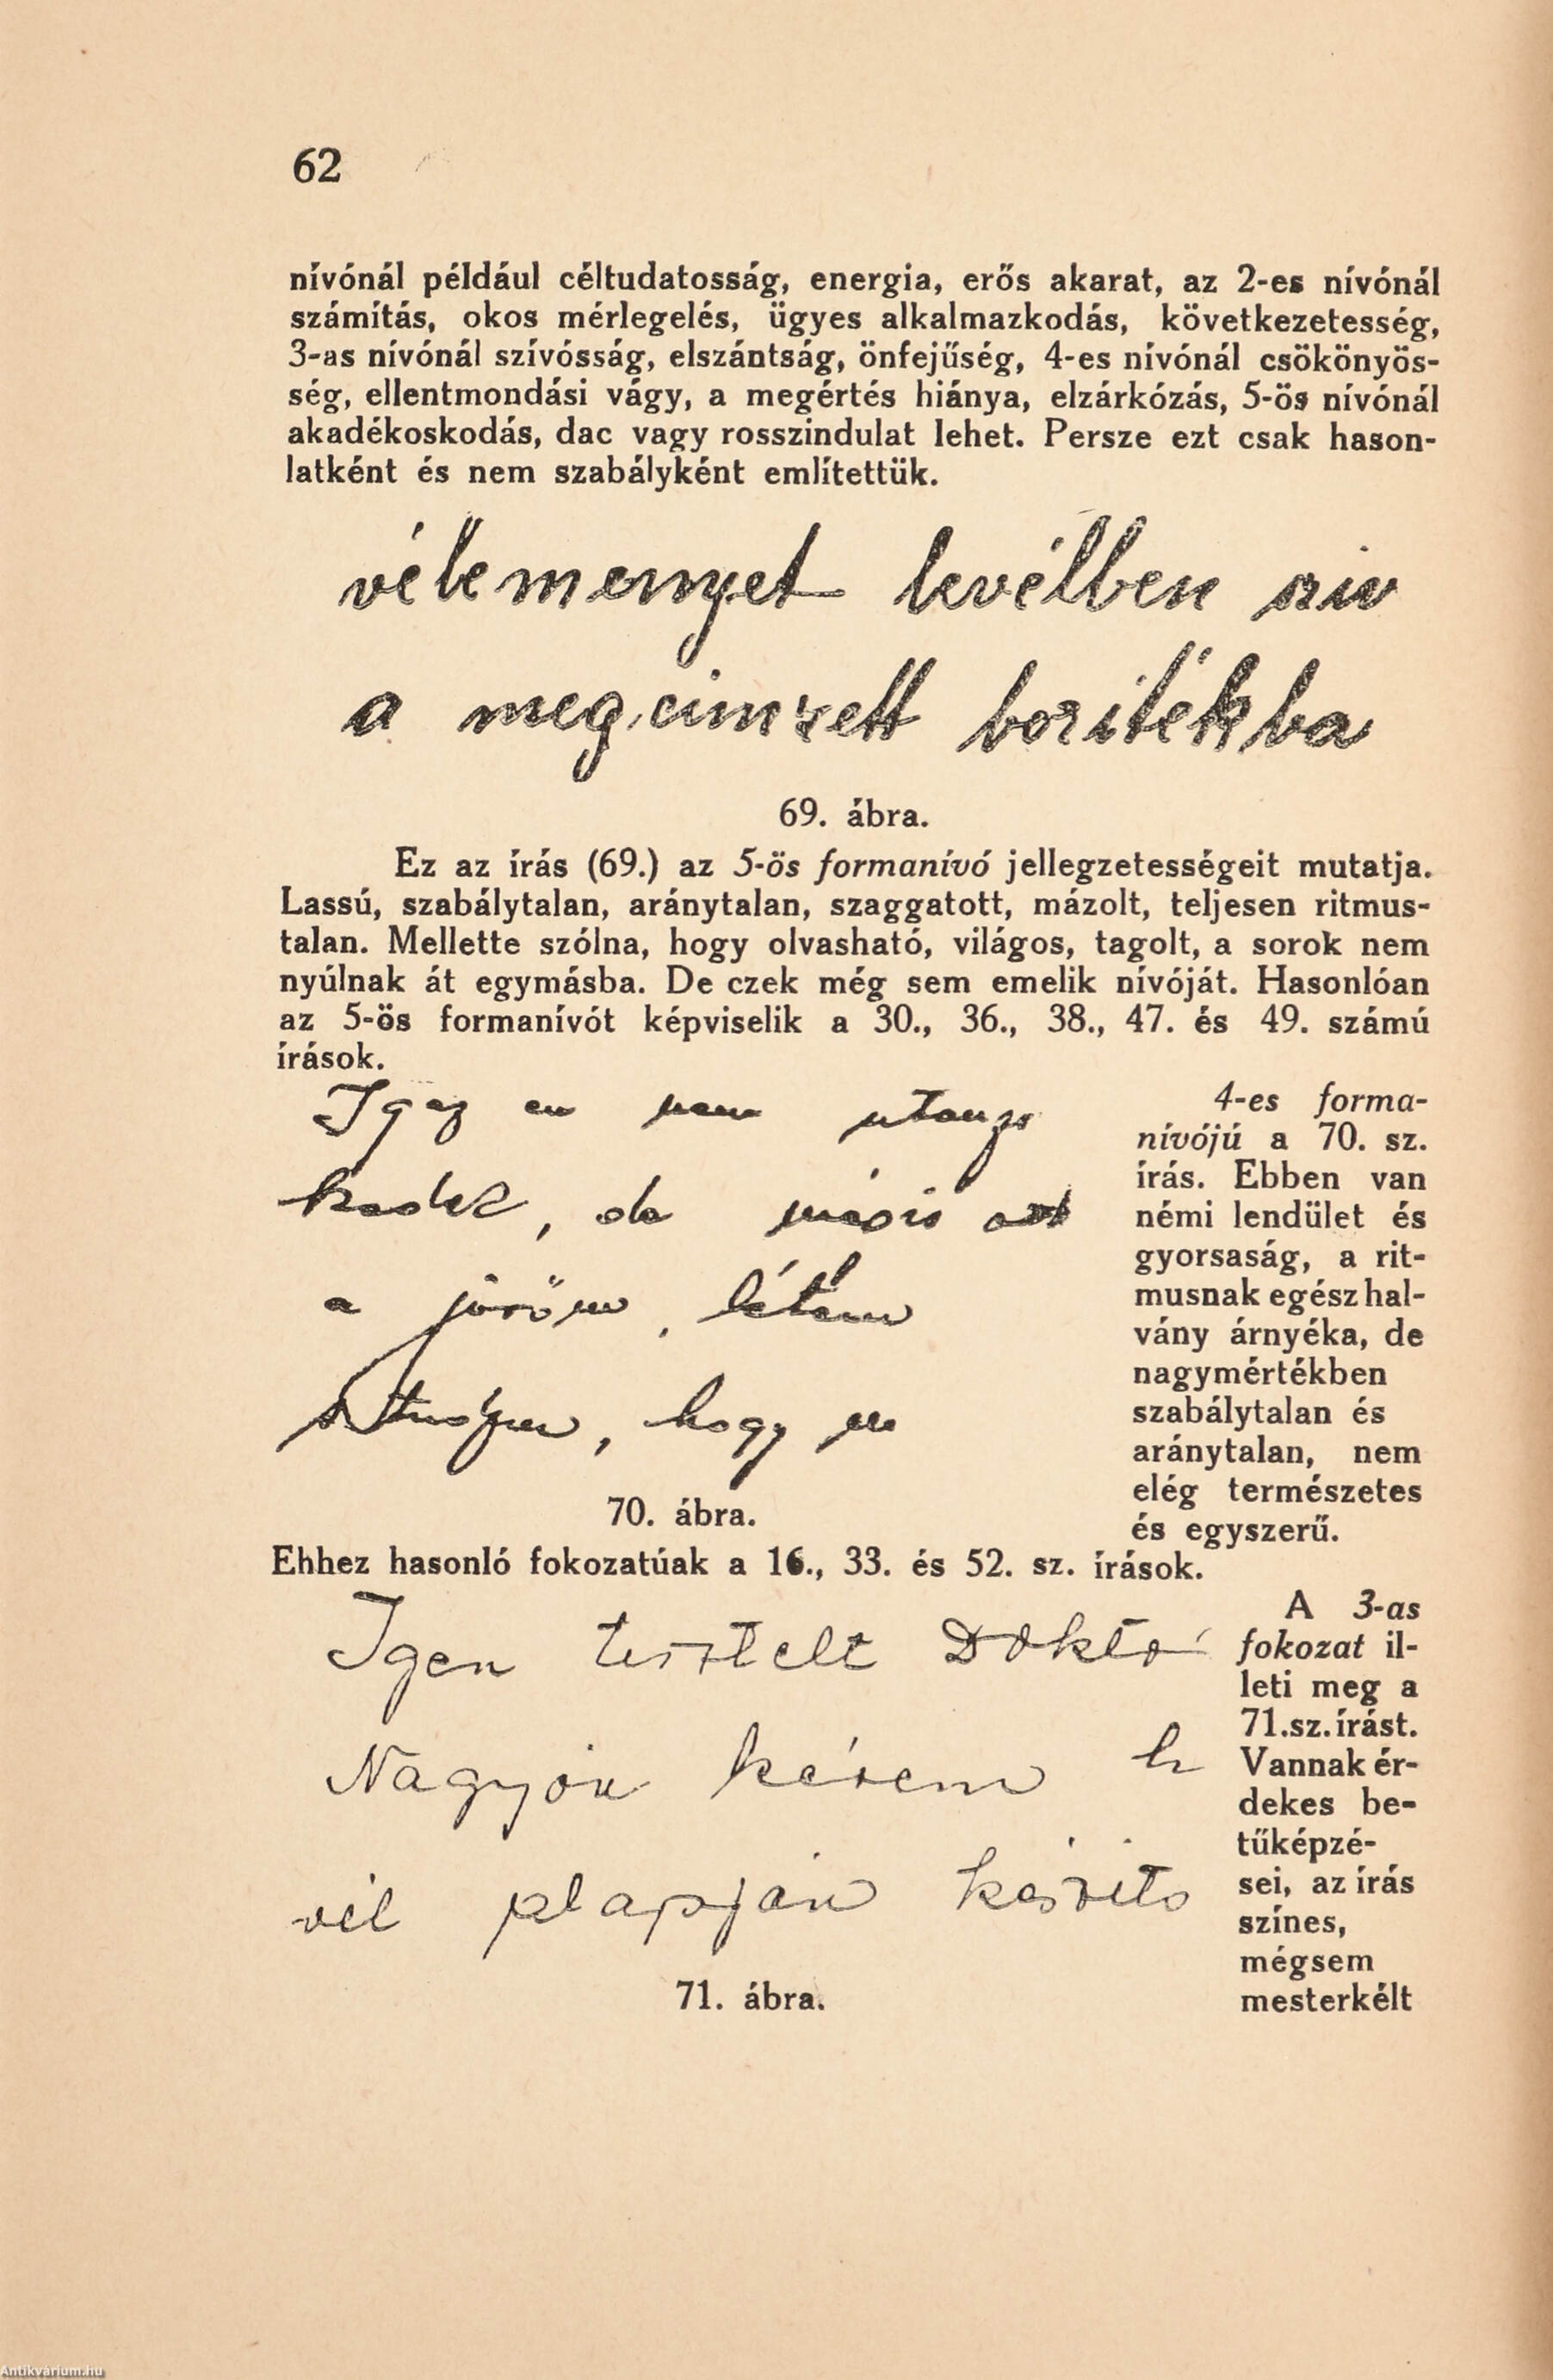 62
nívónál például céltudatosság, energia, erős akarat, az 2-es nívónál
számítás, okos mérlegelés, ügyes alkalmazkodás, következetesség,
3-as nívónál szívósság, elszántság, önfejűség, 4-es nívónál csökönyös-
ség, ellentmondási vágy, a megértés hiánya, elzárkózás, 5-ös nívónál
akadékoskodás, dac vagy rosszindulat lehet. Persze ezt csak hason-
latként és nem szabályként említettük.
véleményet levélben
a megcimzett boritékba
69. ábra.
Ez az írás (69.) az 5-ös formanívó jellegzetességeit mutatja.
Lassú, szabálytalan, aránytalan, szaggatott, mázolt, teljesen ritmus-
talan. Mellette szólna, hogy olvasható, világos, tagolt, a sorok nem
nyúlnak át egymásba. De czek még sem emelik nívóját. Hasonlóan
az 5-ös formanívót képviselik a 30., 36., 38., 47. és 49. számú
írások.
Igaz en nem
, de azt
a jövőm, létem
, hogy
70. ábra.
4-es forma-
nívójú a 70. sz.
írás. Ebben van
némi lendület és
gyorsaság, a rit-
musnak egész hal-
vány árnyéka, de
nagymértékben
szabálytalan és
aránytalan, nem
elég természetes
és egyszerű.
Ehhez hasonló fokozatúak a 16., 33. és 52. sz. írások.
Igen tisztelt Dokto
Nagyon kérem h
vél alapján készíts
71. ábra.
A 3-as
fokozat il-
leti meg a
71.sz.írást.
Vannak ér-
dekes be-
tűképzé-
sei, az írás
színes,
mégsem
mesterkélt
Antikvárium.hu